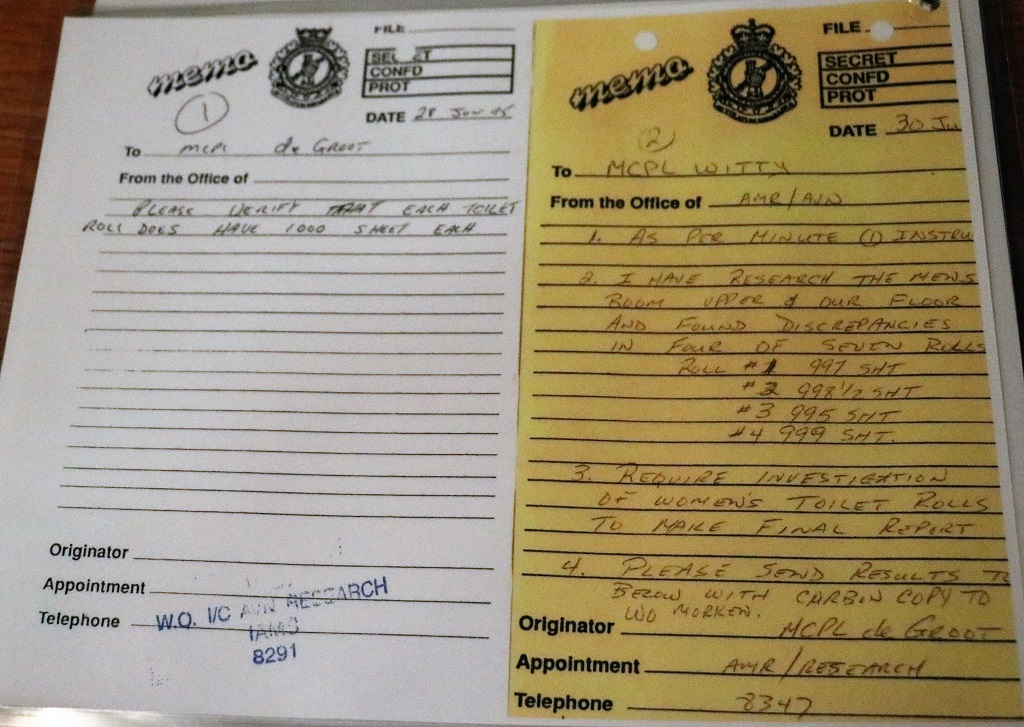 memo
FILE
SECRET
CONFD
PROT
1
DATE 28 Jun 95
To mcpl de Groot
From the Office of
PLEASE VERIFY THAT EACH TOILET
ROLL DOES HAVE 1000 SHEET EACH
Originator
Appointment
Telephone
W.O. I/C AVN RESEARCH
IAMS
8291
memo
FILE
SECRET
CONFD
PROT
2
DATE 30 Ju
To MCPL WITTY
From the Office of AMR/AVN
1. AS PER MINUTE (1) INSTRU
2. I HAVE RESEARCH THE MENS
ROOM UPPER & OUR FLOOR
AND FOUND DISCREPANCIES
IN FOUR OF SEVEN ROLLS
ROLL #1 997 SHT
#2 998 1/2 SHT
#3 995 SHT
#4 999 SHT.
3. REQUIRE INVESTIGATION
OF WOMEN'S TOILET ROLLS
TO MAKE FINAL REPORT
4. PLEASE SEND RESULTS TO
BELOW WITH CARBON COPY TO
WO MORKEN.
Originator MCPL de GROOT
Appointment AMR/RESEARCH
Telephone 8347